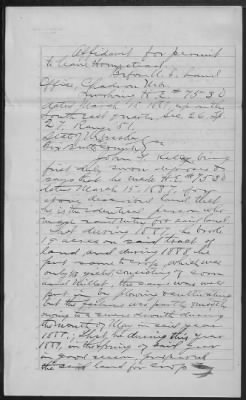 Affidavit for permit
to leave Homestead.
Before U.S. Land
Office, Chadron Neb.
Involving H.E. # 7530
dated March 15, 1887, upon the
South east quarter Sec. 26, Tp.
27 Range 51
State of Nebraska
Box Butte County
John F. Kelly being
first duly sworn deposes &
says that he made H.E. # 7530
dated March 15, 1887, for
above described land, that
he is the identical person who
made said entry for said land.
That during 1887, he broke
15 acres on said tract of
land and during 1888 he
put same to crop, which was
only partially, consisting of corn
and millet, the same was well
put in by plowing &
but the failure was partly
owing to a severe drouth during
the month of May in said year
1888. That he during this year
1889, in the Spring of said year
in good season, prepared
the said land for crop